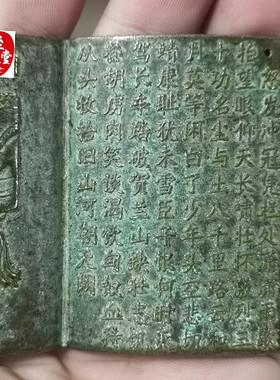 发冲冠凭栏处潇
抬望眼仰天长啸壮怀激烈三
十功名尘与土八千里路云和
月莫等闲白了少年头空悲切
靖康耻犹未雪臣子恨何时灭
驾长车踏破贺兰山缺壮志
餐胡虏肉笑谈渴饮匈奴血待
从头收拾旧山河朝天阙
堂